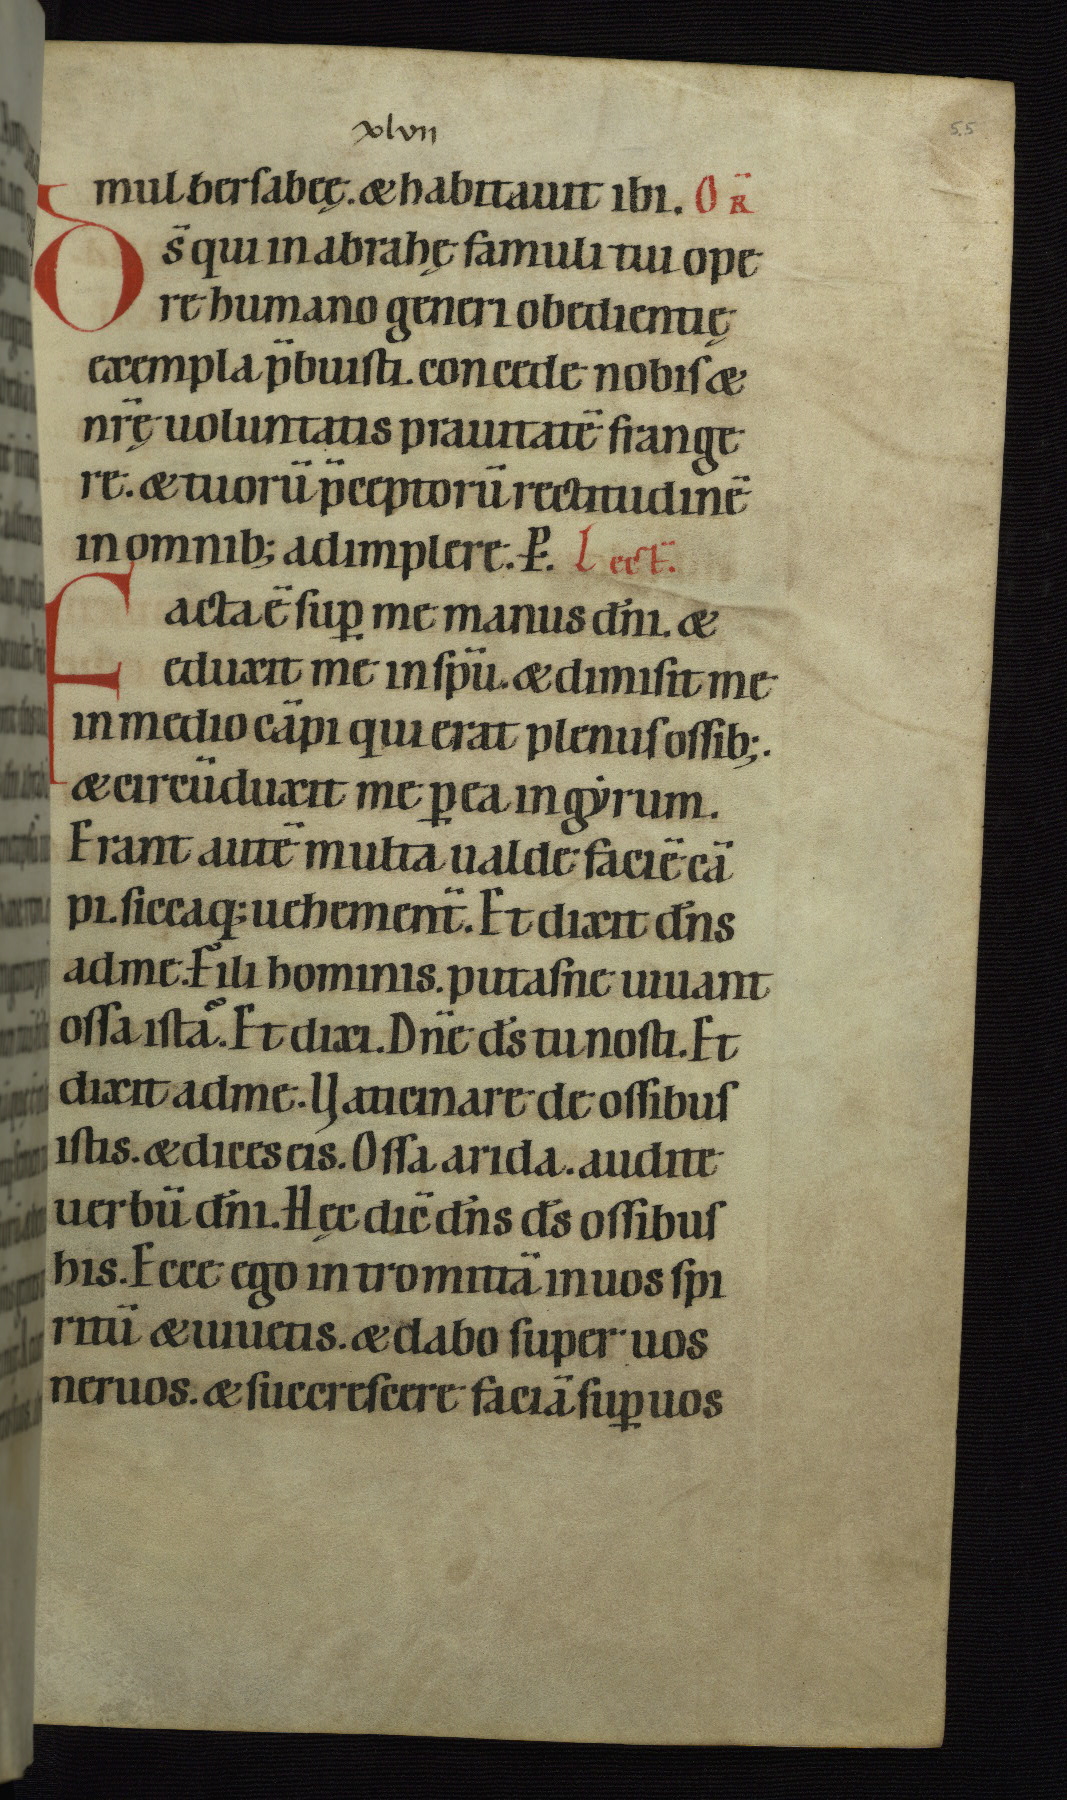 xlvii
55
mul bersabeę. & habitauit ibi. OR̄
Ds̄ qui in abrahę famuli tui ope
re humano generi obedientię
exempla p̄buisti. concede nobis &
nr̄ę uoluntatis prauitatē frange
re. & tuorū p̄ceptorū rectitudinē
in omnib; adimplere. P. Lect̄.
Facta ē sup̱ me manus dn̄i. &
eduxit me in sp̄u. & dimisit me
in medio cāpi qui erat plenus ossib;.
& circūduxit me p̱ ea in gẏrum.
Erant autē multa ualde faciē cā
pi. siccaq; uehement̄. Et dixit dn̄s
ad me. Fili hominis. putasne uiuant
ossa ista. Et dixi. Dn̄e ds̄ tu nosti. Et
dixit ad me. Vaticinare de ossibus
istis. & dices eis. Ossa arida. audite
uerbū dn̄i. Hęc dic̄ dn̄s ds̄ ossibus
his. Ecce ego intromittā in uos spi
ritū & uiuetis. & dabo super uos
neruos. & succrescere faciā sup̱ uos